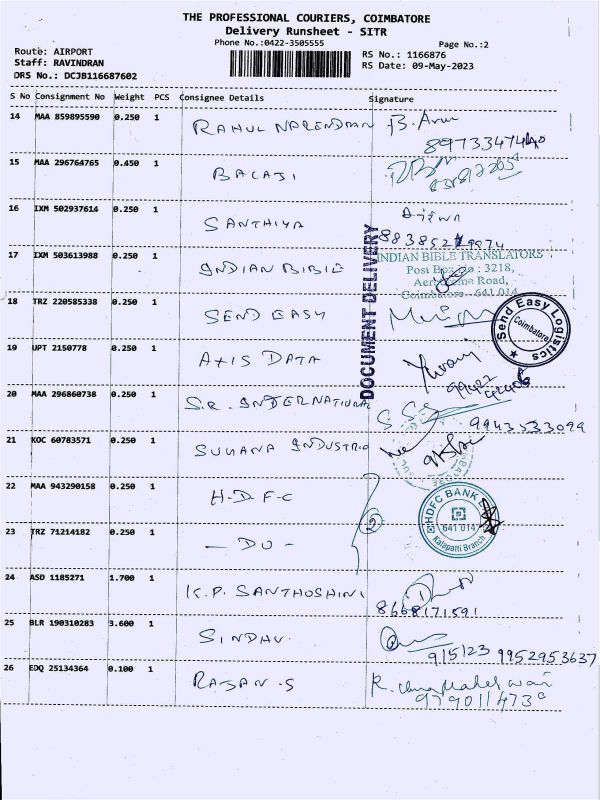 THE PROFESSIONAL COURIERS, COIMBATORE
Delivery Runsheet - SITR
Phone No.:0422-3505555
Page No.:2
Route: AIRPORT
Staff: RAVINDRAN
DRS No.: DCJB116687602
RS No.: 1166876
RS Date: 09-May-2023
S No Consignment No Weight PCS Consignee Details Signature
14 MAA 859895590 0.250 1 RAHUL NARENDRAN B. Arun
15 MAA 296764765 0.450 1 BALAJI
16 IXM 502937614 0.250 1 SANTHIYA
17 IXM 503613988 0.250 1 INDIAN BIBLE
INDIAN BIBLE TRANSLATORS
Post Box No : 3218,
Aerodrome Road,
Coimbatore - 641 014
DOCUMENT DELIVERY
18 TRZ 220585338 0.250 1 SEND EASY
Send Easy Logistics
Coimbatore
19 UPT 2150778 0.250 1 AXIS DATA
20 MAA 296860738 0.250 1 S.R. INTERNATIONAL
9943533099
21 KOC 60783571 0.250 1 SUGANA INDUSTRIE
22 MAA 943290158 0.250 1 H.D.F.C
HDFC BANK
641 014
Kalapatti Branch
23 TRZ 71214182 0.250 1 - DO - 2
24 ASD 1185271 1.700 1 K.P. SANTHOSHINI
8668171591
25 BLR 190310283 3.600 1 SINDHU.
9/5/23 9952953637
26 EDQ 25134364 0.100 1 RAJAN.S R. Umamaheswari
9790114730